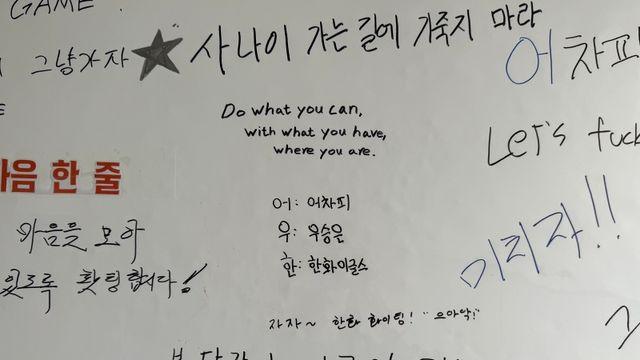 GAME.
그냥가자 ★ 사나이 가는 길에 기죽지 마라
어차피
Do what you can,
with what you have,
where you are.
Let's fuck
마음 한 줄
어: 어차피
우: 우승은
한: 한화이글스
마음을 모아
미리자!!
있도록 홧팅합시다!
자자~ 한화 화이팅! "으아악!"